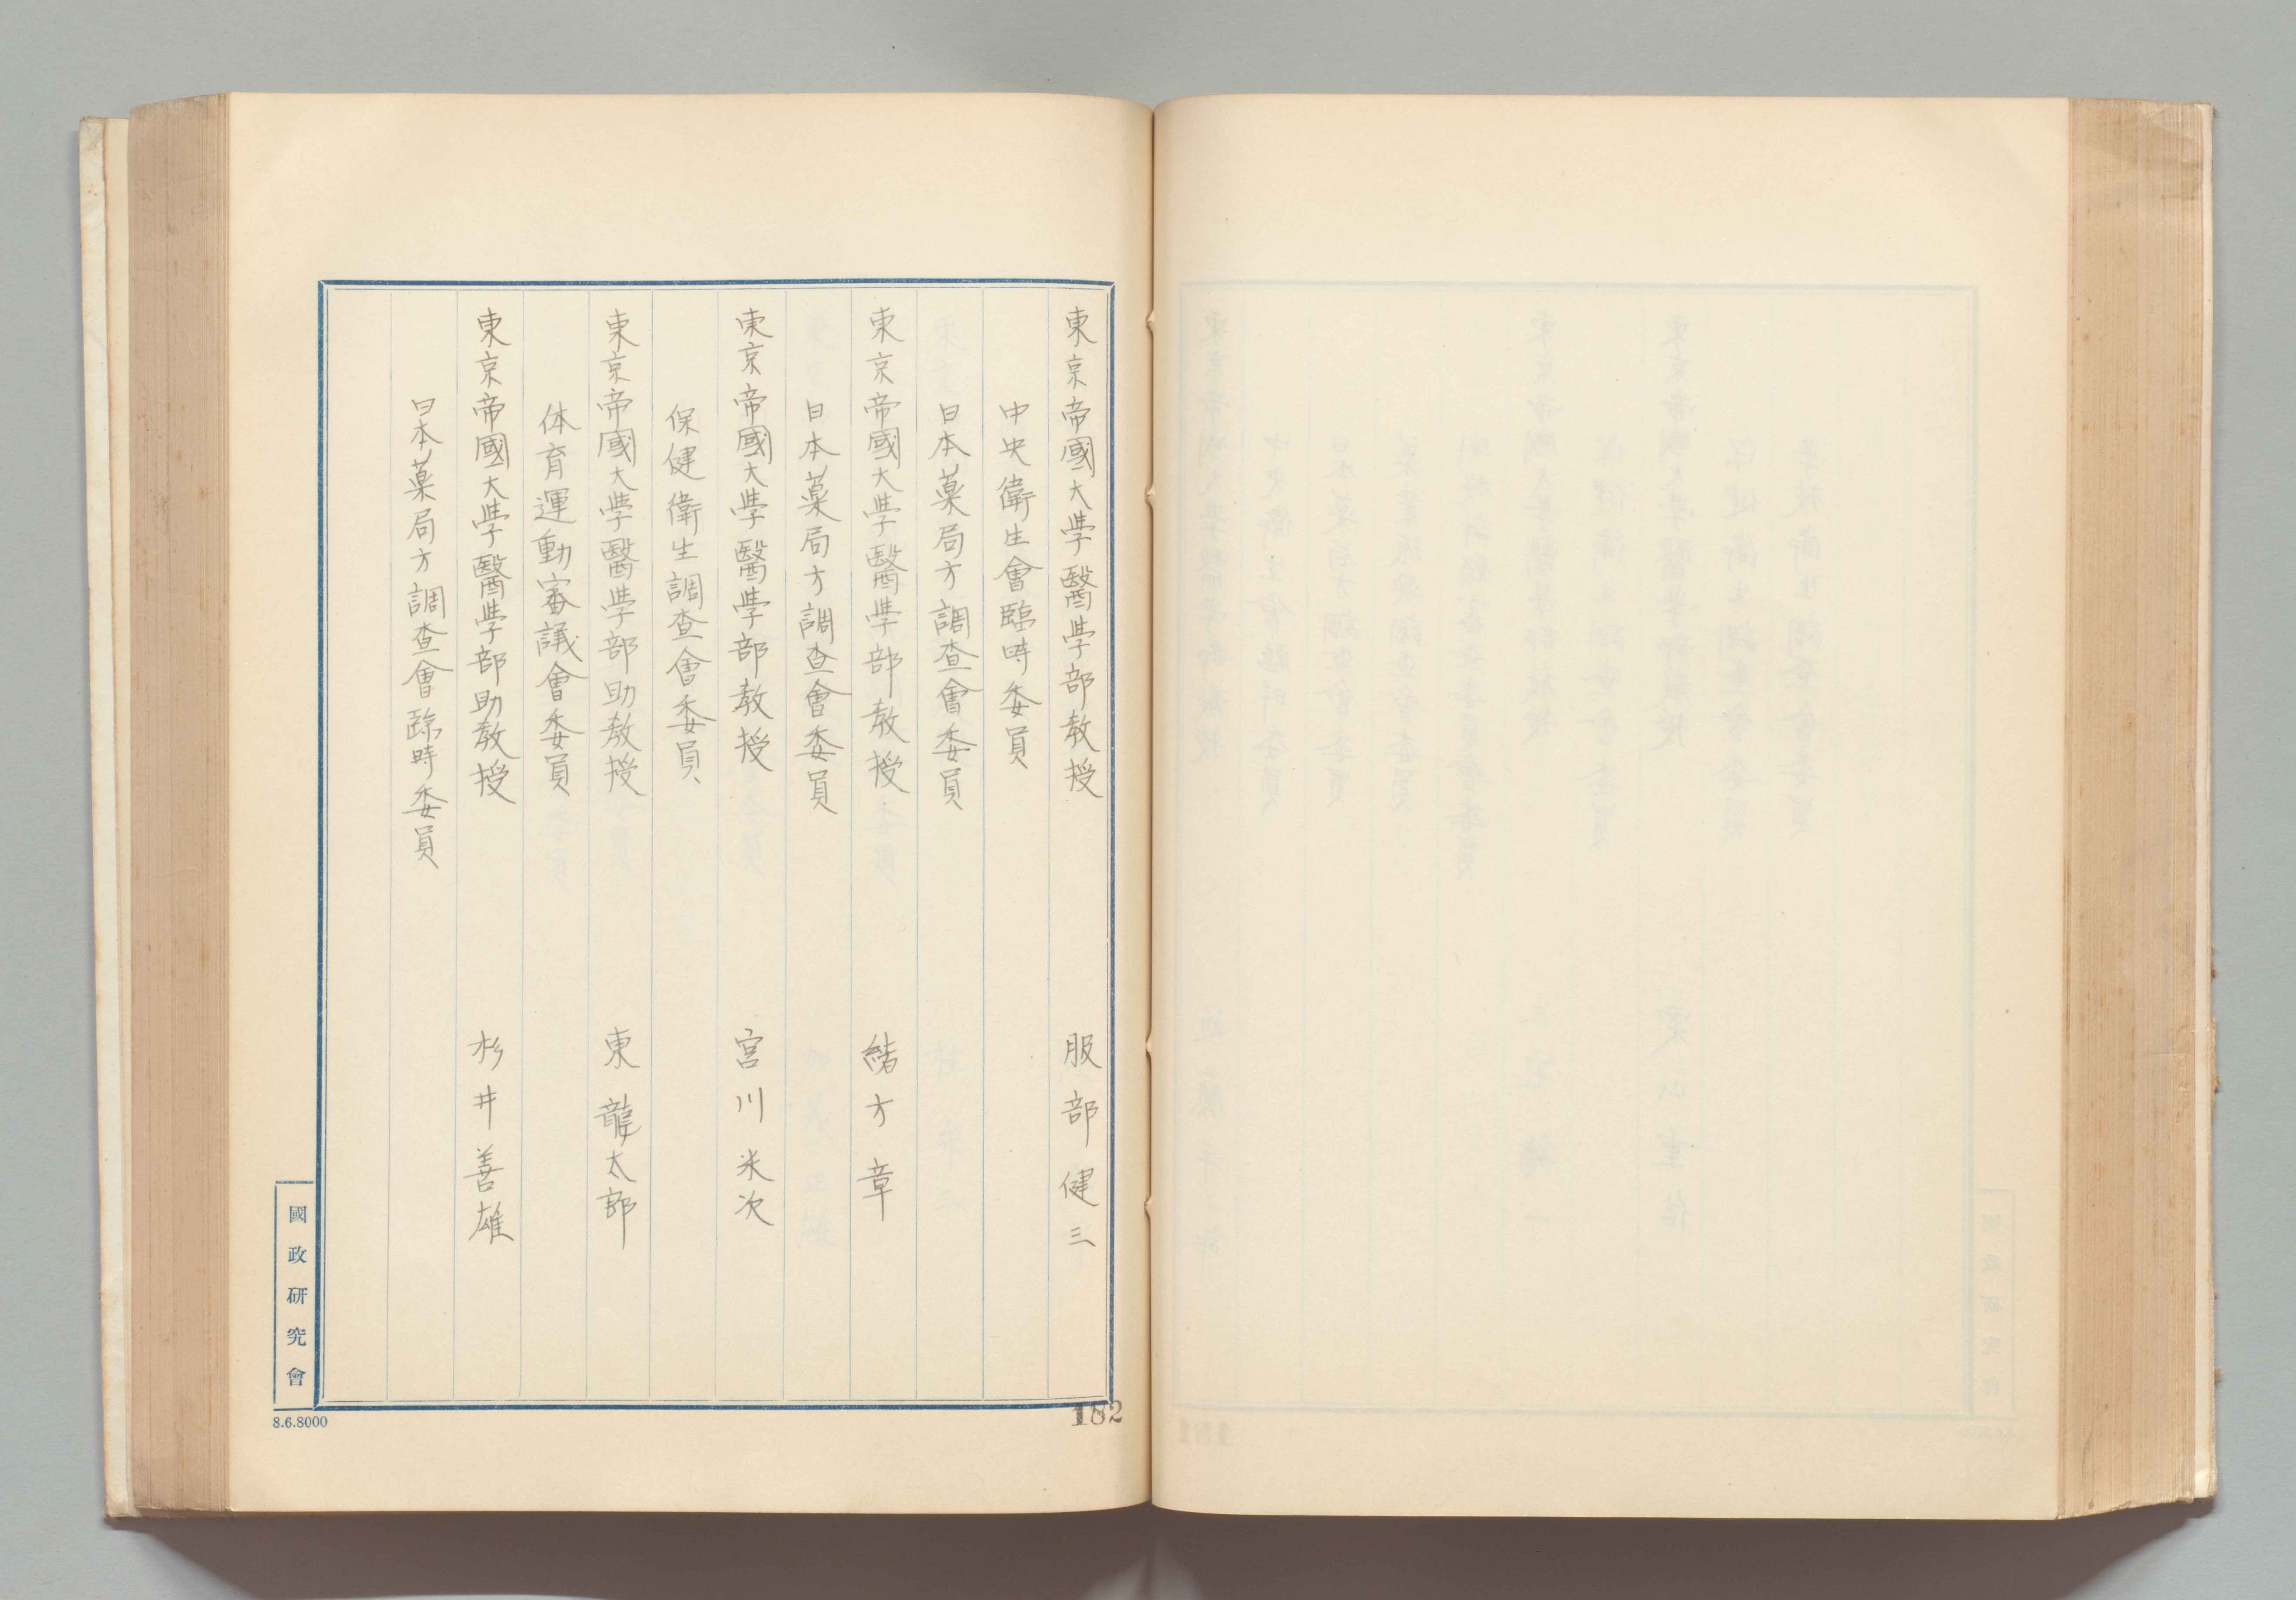 東京帝國大學醫學部教授　服部健三
中央衛生會臨時委員
日本藥局方調査會委員
東京帝國大學醫學部教授　緒方章
日本藥局方調査會委員
東京帝國大學醫學部教授　宮川米次
保健衛生調査會委員、
東京帝國大學醫學部助教授　東龍太郎
体育運動審議會委員
東京帝國大學醫學部助教授　杉井善雄
日本藥局方調査會臨時委員
國政研究會
8.6.8000
182